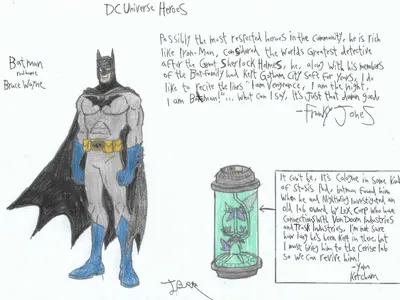 DC Universe Heroes
Batman
real name:
Bruce Wayne
Possibly the most respected heroes in the community, he is rich
like Iron-Man, considered the Worlds Greatest detective
after the Great Sherlock Holmes, he, along with his members
of the Bat-family had kept Gotham City safe for years. I do
like to recite the lines "I am Vengeance, I am the night,
I am Batman!"... What can I say, It's Just that damn good.
-Frank Jones
It can't be, It's Cologne in some kind
of stasis Pod, Batman found him
When he and Nightwing investigated an
old lab owned by Lex Corp who have
connections with Van Doom Industries
and Trask Industries, I'm not sure
how long he's been kept in there, but
I must bring him to the Cerise lab
so we can revive him!
-Yam
Ketchum